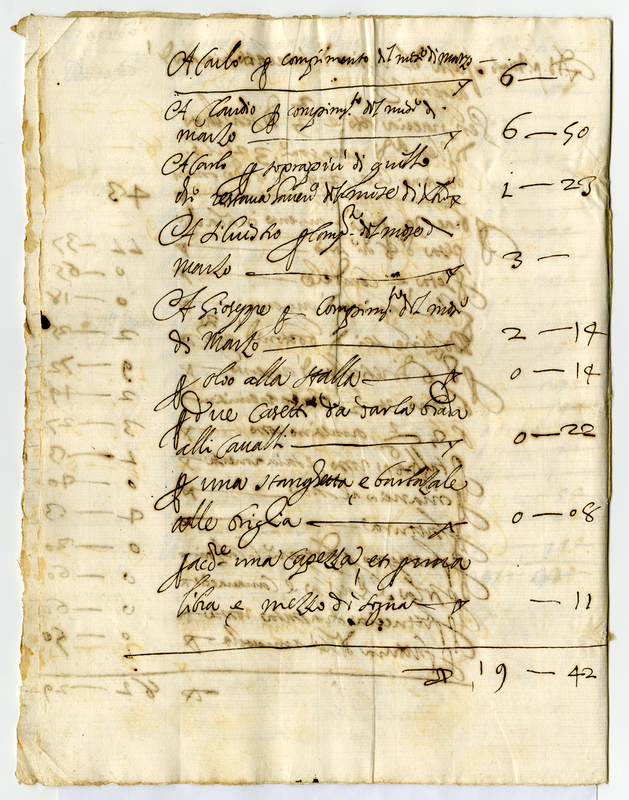 A Carlo p compimento del mese di marzo — 6 —
A Claudio p compim.to del mese di
Marzo — 6 — 50
A Carlo p soprapiù di quello
che restava del mese di 1 — 23
A Silvestro p comp.to del mese di
Marzo — 3 —
A Gioseppe p compim.to del mese
di Marzo — 2 — 14
p olio alla stalla — 0 — 14
p due da dar la biava
alli Cavalli — 0 — 22
p una stanghetta e barbazale
alle briglia — 0 — 08
p una et p una
libra e mezzo di sogna — 11
19 — 42